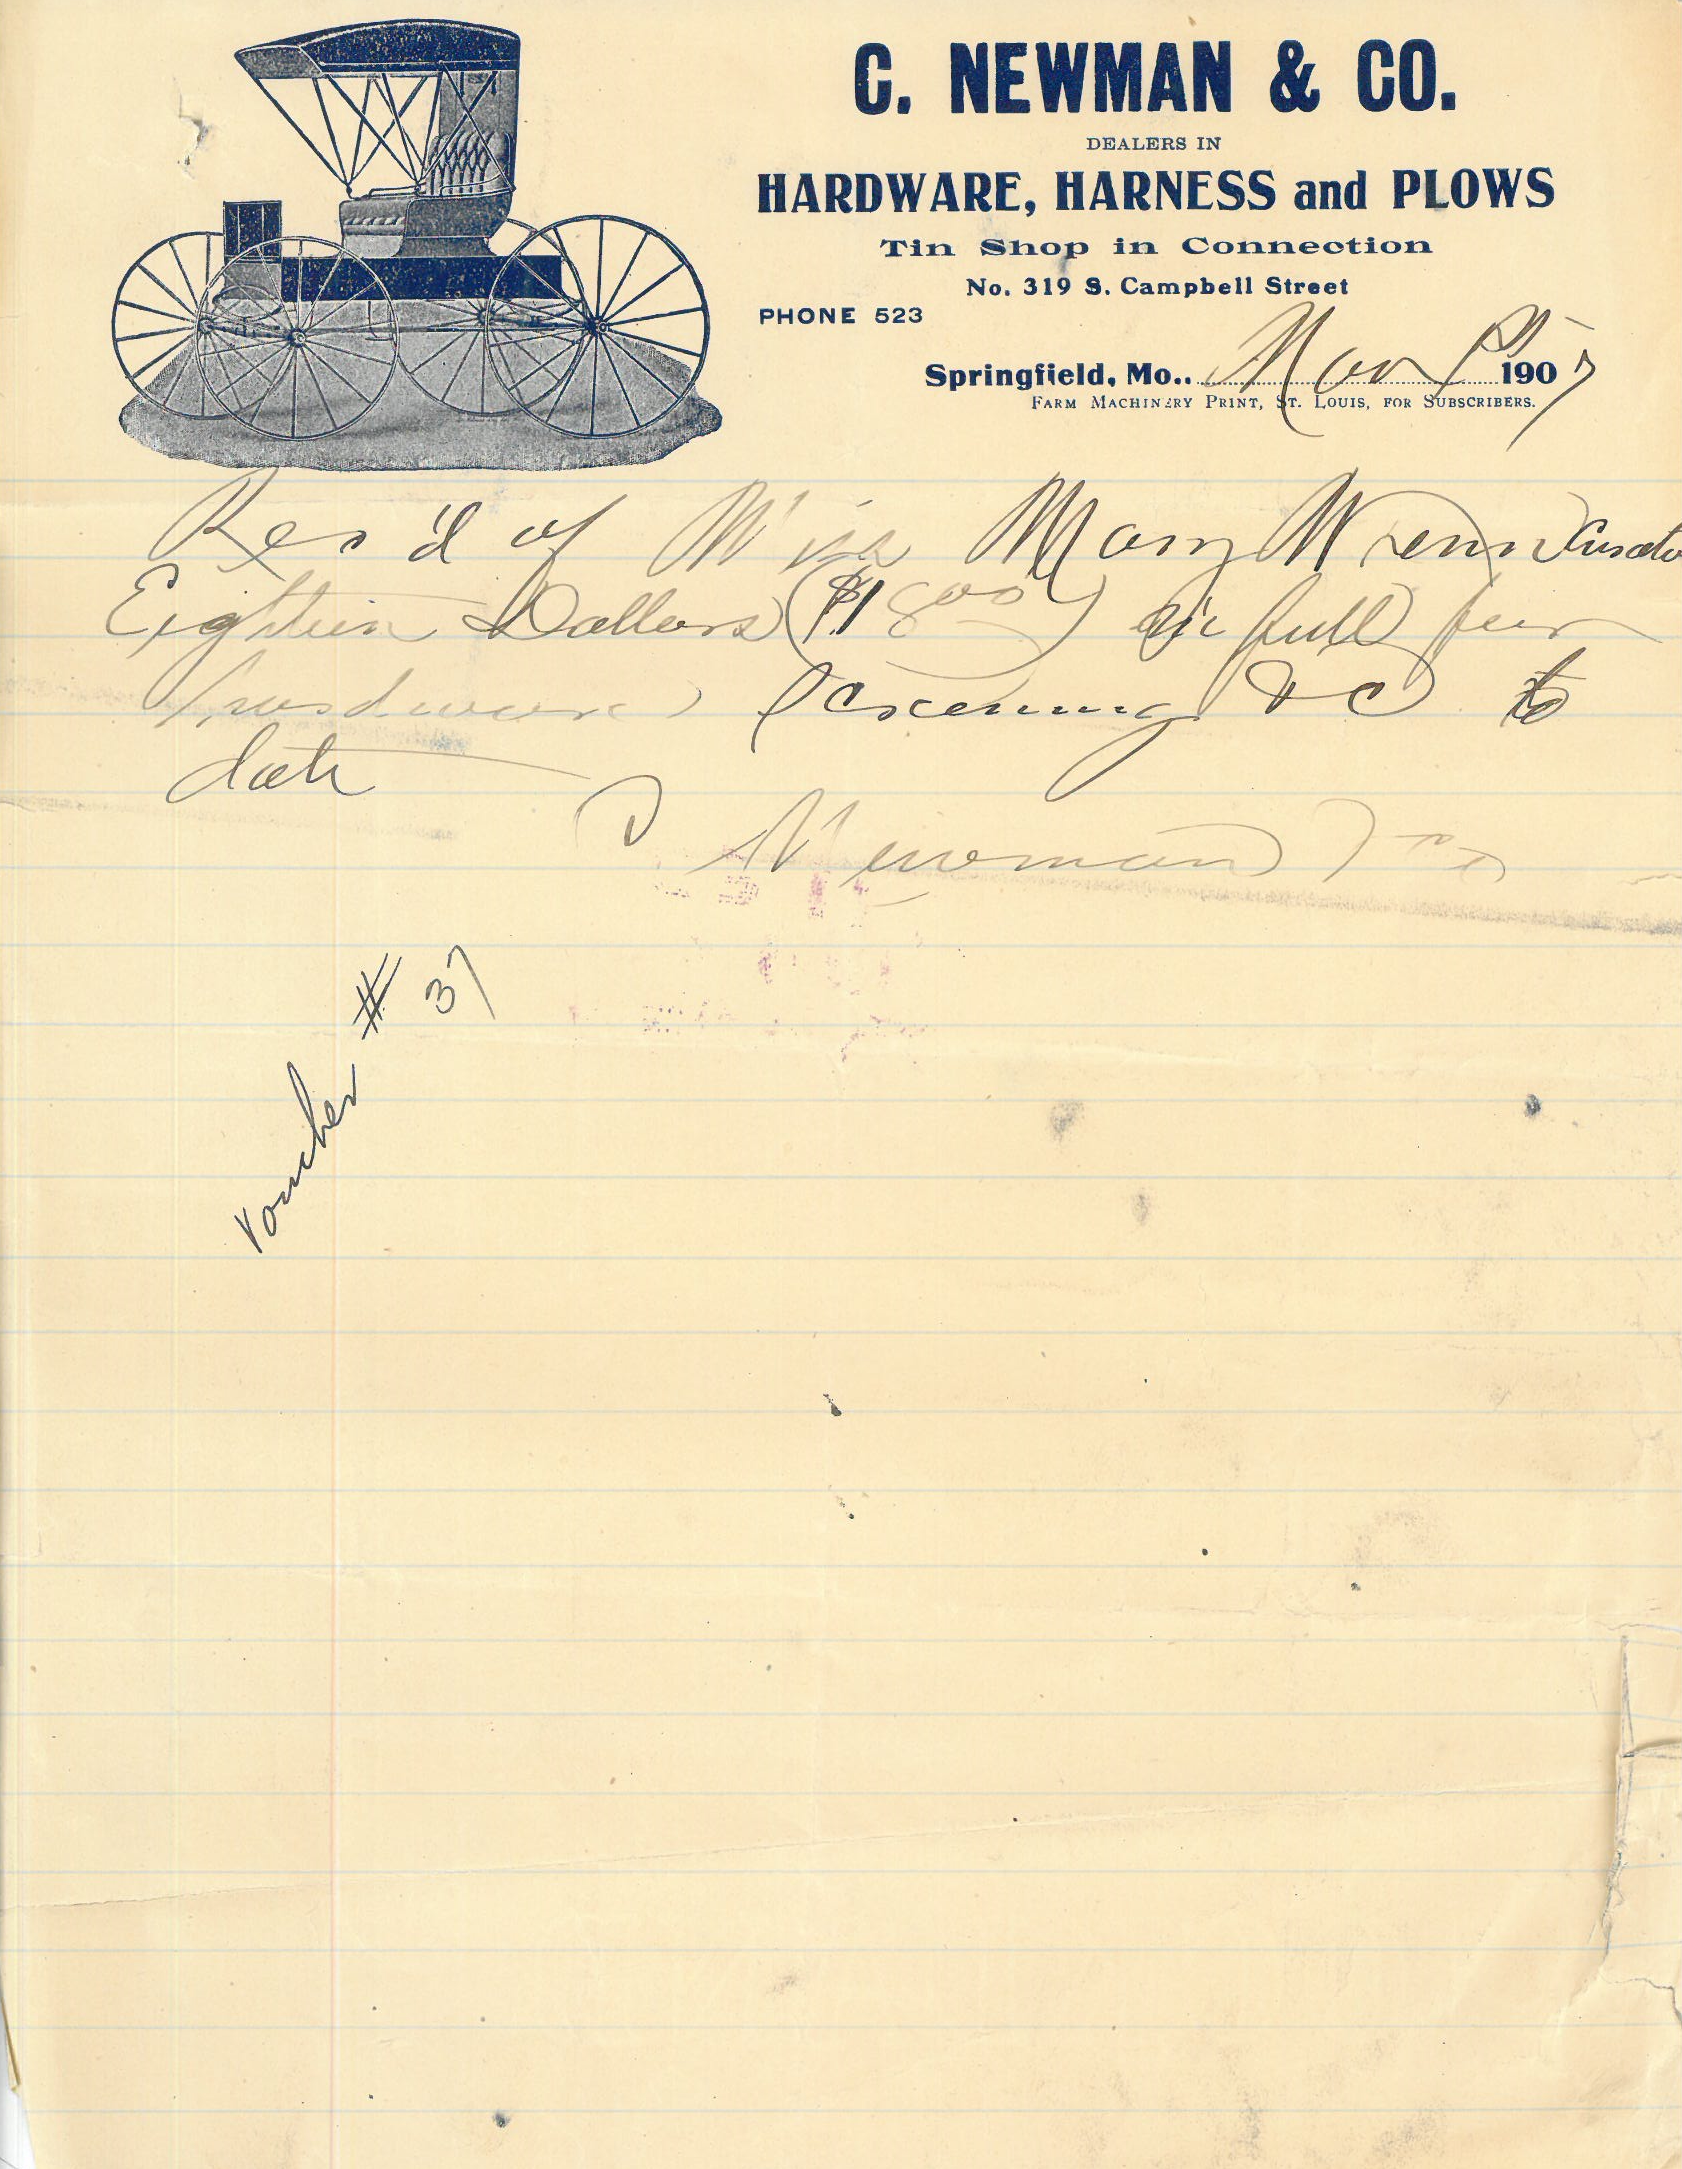 C. NEWMAN & CO.
DEALERS IN
HARDWARE, HARNESS and PLOWS
Tin Shop in Connection
No. 319 S. Campbell Street
PHONE 523
Springfield, Mo.. Nov 1907
FARM MACHINERY PRINT, ST. LOUIS, FOR SUBSCRIBERS.
Rec'd of Miss Mary Wrenn
Eighteen Dollars ($18 00) in full for
hardware, screening &c to
date
C Newman & Co
Voucher # 37